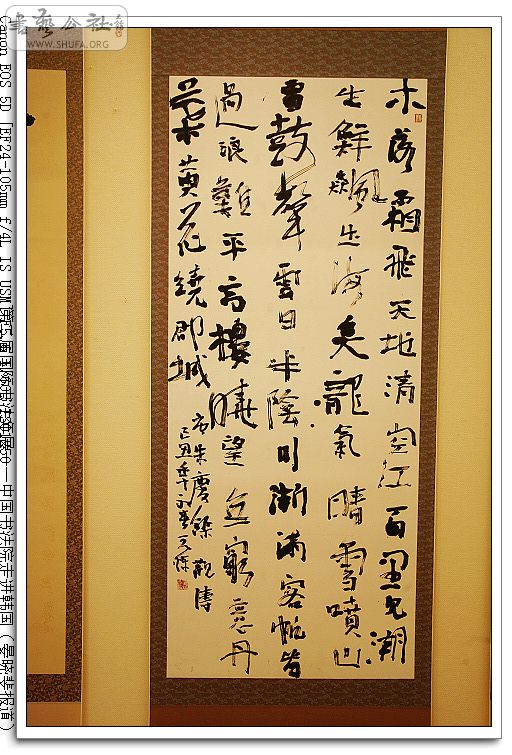 書藝公社
WWW.SHUFA.ORG
木落霜飛天地清空江百里見潮
生鮮飆出海魚龍氣晴雪噴山
雷鼓聲雲日半陰川漸滿客帆皆
過浪難平高樓曉望無窮意丹
葉黃花繞郡城
唐朱慶餘觀濤
己丑年
Canon EOS 5D [EF24-105mm f/4L IS USM]
60—中国书法院走进韩国（晏晓斐报道）